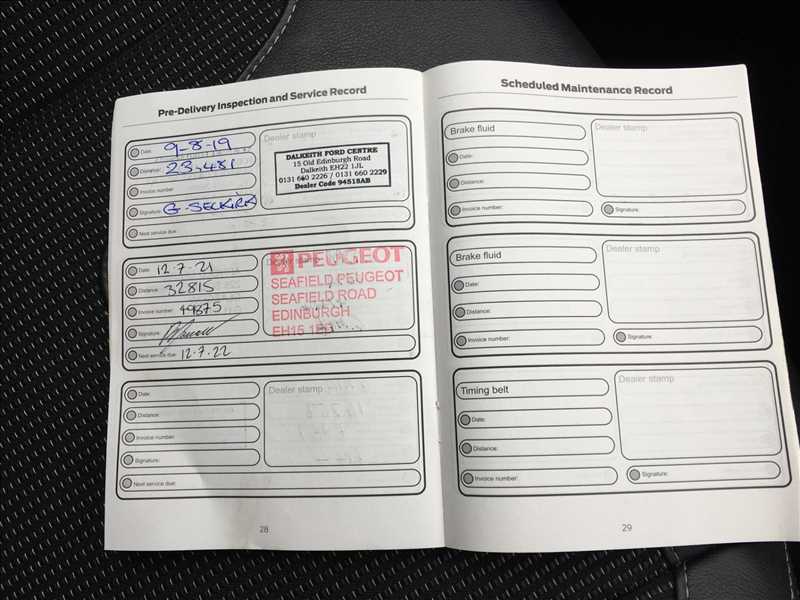 Pre-Delivery Inspection and Service Record
Date: 9-8-19
Distance: 23,481
Invoice number:
Signature: G. SELKIRK
Next service due:
Dealer stamp
DALKEITH FORD CENTRE
15 Old Edinburgh Road
Dalkeith EH22 1JL
0131 660 2226 / 0131 660 2229
Dealer Code 94518AB
Date: 12.7.21
Distance: 32815
Invoice number: 49875
Signature:
Next service due: 12.7.22
Dealer stamp
PEUGEOT
SEAFIELD PEUGEOT
SEAFIELD ROAD
EDINBURGH
EH15 1ED
Date:
Distance:
Invoice number:
Signature:
Next service due:
Dealer stamp
28
Scheduled Maintenance Record
Brake fluid
Date:
Distance:
Invoice number:
Dealer stamp
Signature:
Brake fluid
Date:
Distance:
Invoice number:
Dealer stamp
Signature:
Timing belt
Date:
Distance:
Invoice number:
Dealer stamp
Signature:
29